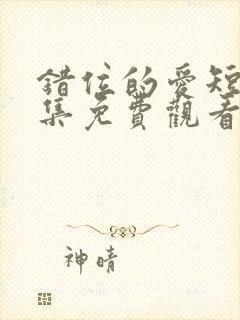 錯位的愛短
集免費觀看
神晴